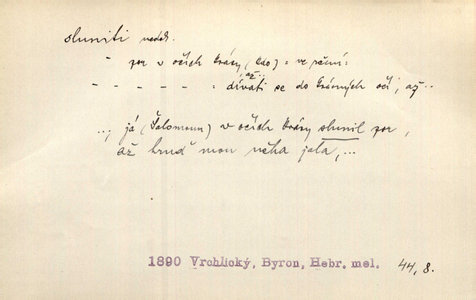 sluniti nedok.
" zor v očích krásy (kdo) = ve rčení:
až..
- - - - - = dívati se do krásných očí, až..
.., já (Šalomoun) v očích krásy slunil zor,
až hruď mou něha jala,...
1890 Vrchlický, Byron, Hebr. mel. 44, 8.